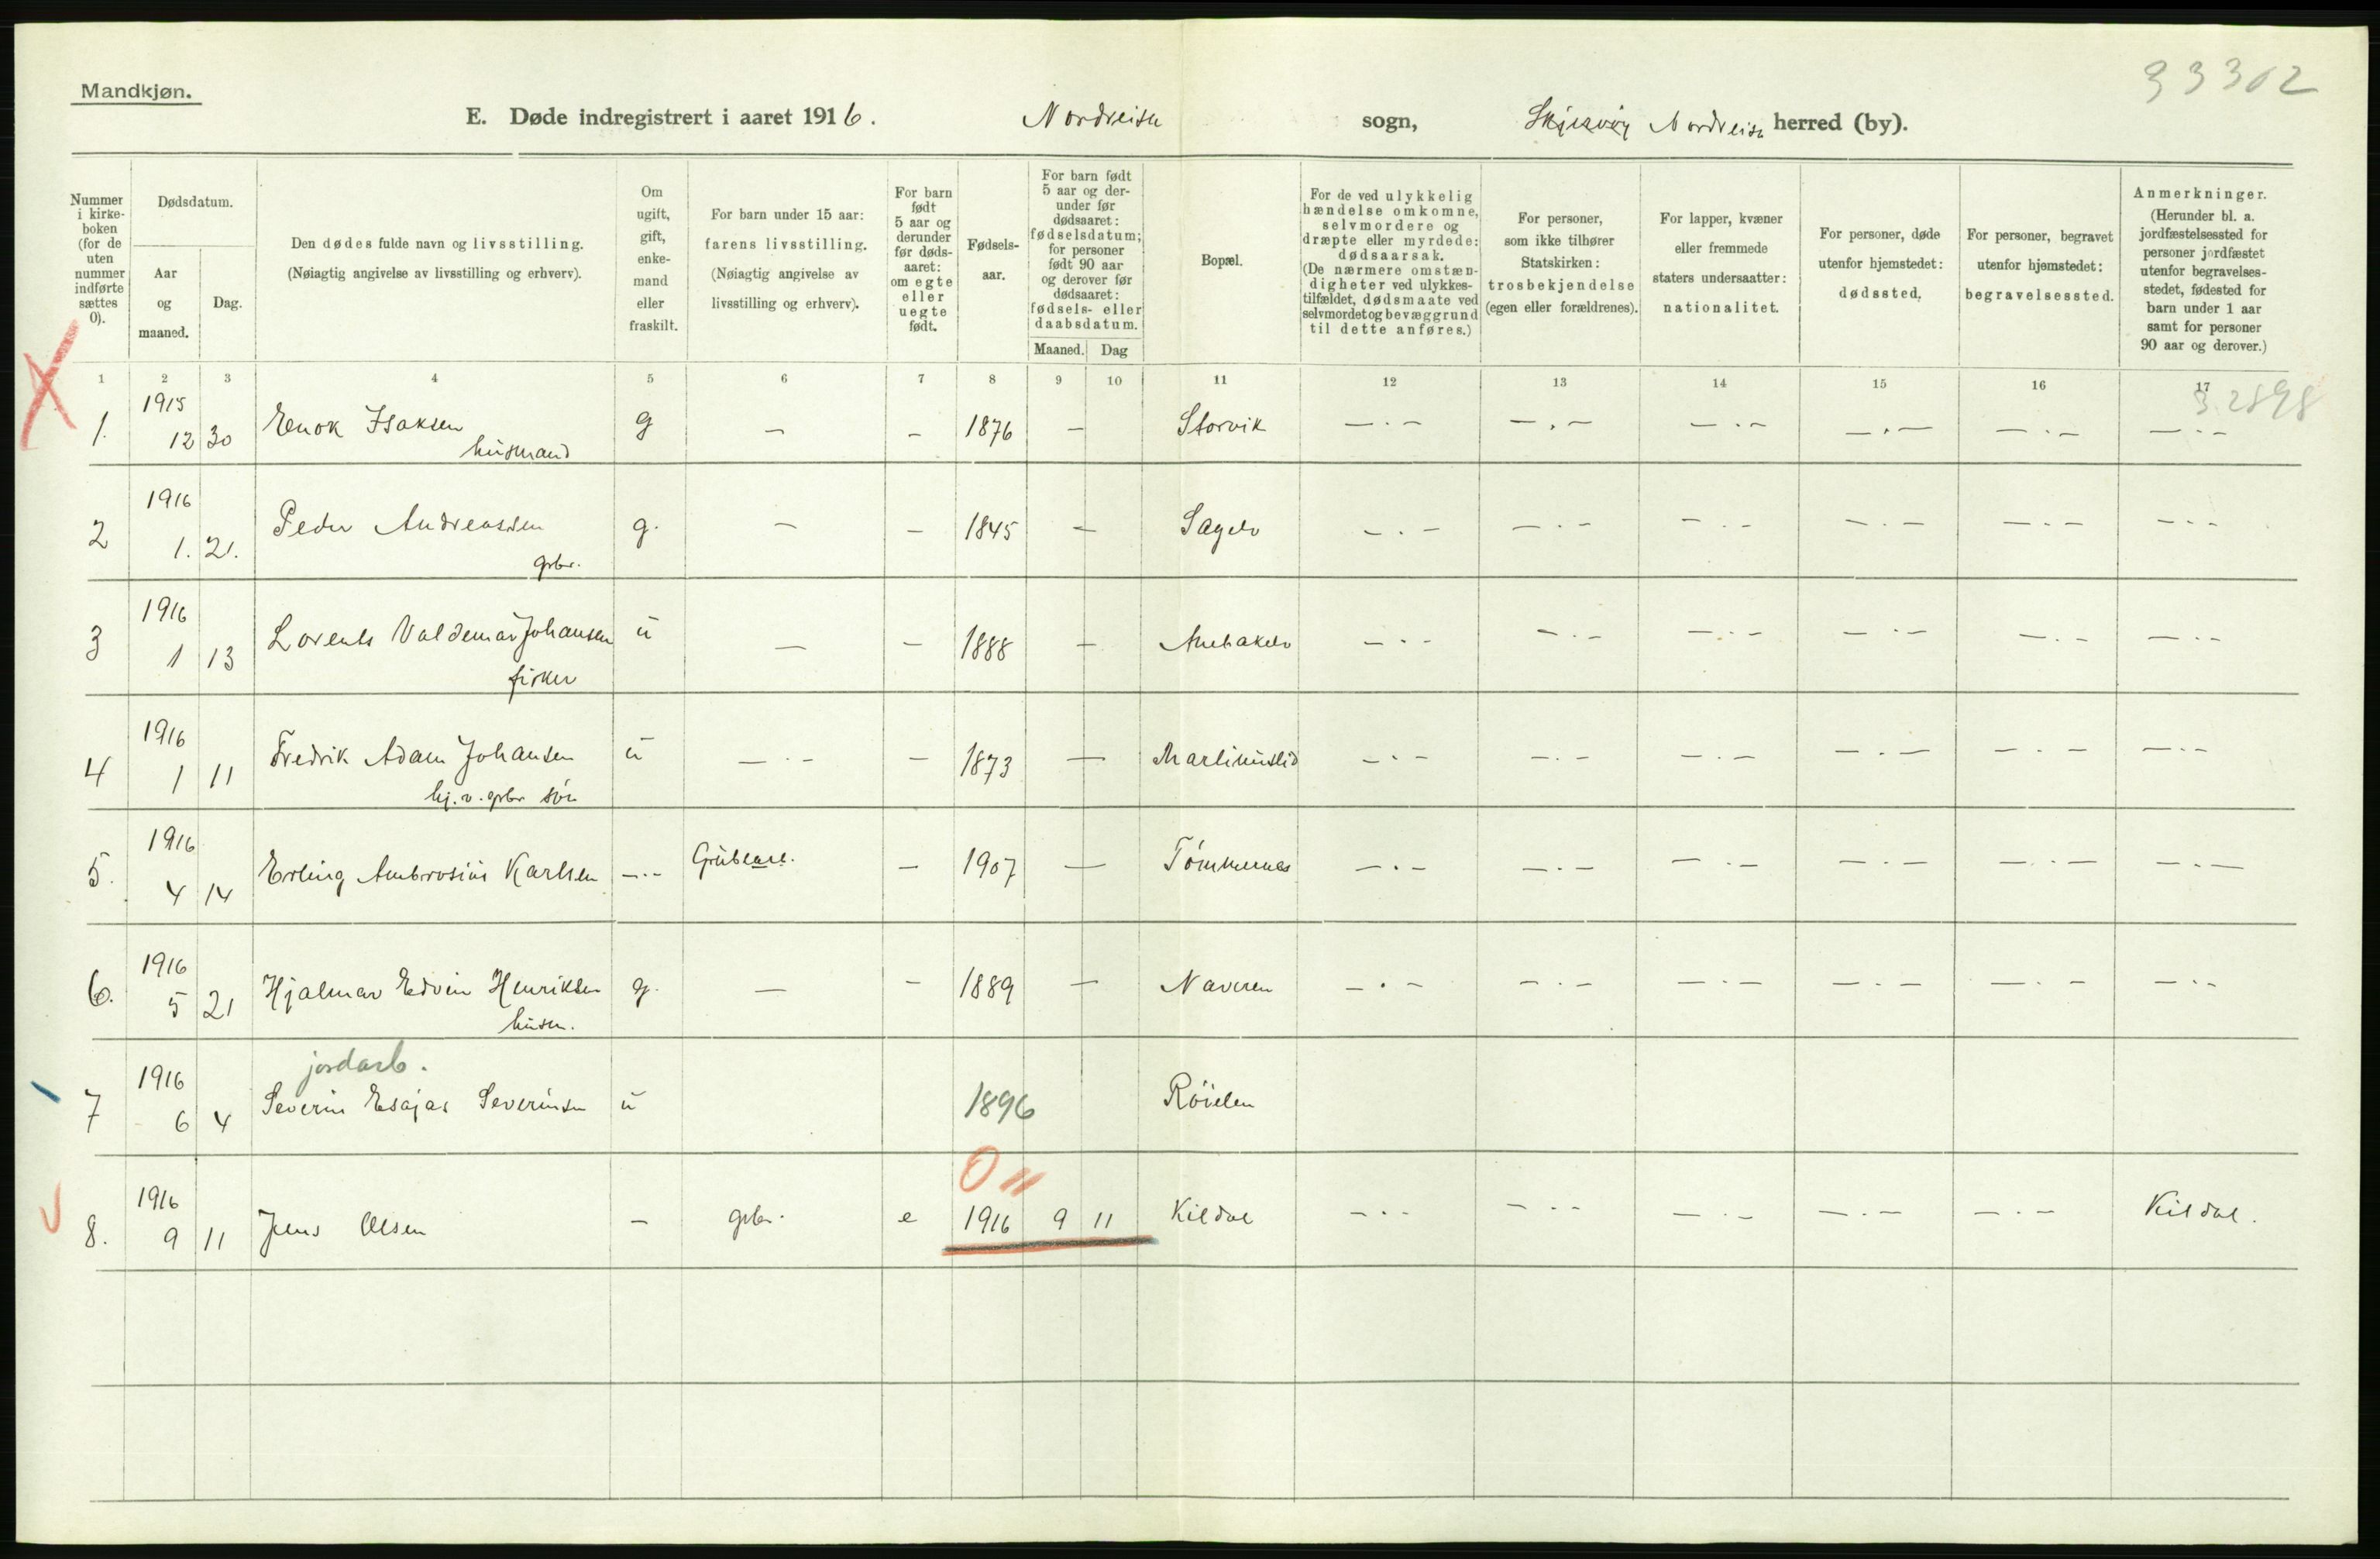 33302
Mandkjøn.
E. Døde indregistrert i aaret 1916. Nordreisa sogn, Skjervøy Nordreisa herred (by).
Nummer i kirke-boken (for de uten nummer indførte sættes 0).
Dødsdatum.
Aar og maaned.
Dag.
Den dødes fulde navn og livsstilling.
(Nøiagtig angivelse av livsstilling og erhverv).
Om ugift, gift, enke-mand eller fraskilt.
For barn under 15 aar: farens livsstilling.
(Nøiagtig angivelse av livsstilling og erhverv).
For barn født 5 aar og derunder før døds-aaret: om egte eller uegte født.
Fødsels-aar.
For barn født 5 aar og der-under før dødsaaret: fødselsdatum; for personer født 90 aar og derover før dødsaaret: fødsels- eller daabsdatum.
Maaned. Dag
Bopæl.
For de ved ulykkelig hændelse omkomne, selvmordere og dræpte eller myrdede: dødsaarsak.
(De nærmere omstæn-digheter ved ulykkes-tilfældet, dødsmaate ved selvmordet og bevæggrund til dette anføres.)
For personer, som ikke tilhører Statskirken: trosbekjendelse (egen eller forældrenes).
For lapper, kvæner eller fremmede staters undersaatter: nationalitet.
For personer, døde utenfor hjemstedet: dødssted.
For personer, begravet utenfor hjemstedet: begravelsessted.
Anmerkninger.
(Herunder bl. a. jordfæstelsessted for personer jordfæstet utenfor begravelses-stedet, fødested for barn under 1 aar samt for personer 90 aar og derover.)
1 2 3 4 5 6 7 8 9 10 11 12 13 14 15 16 17
3.2898
1915
1. 12 30 Enok Isaksen g — — 1876 — Storvik —.— —.— —.— —.— —.— —.—
husmand
1916
2 1. 21. Peder Andreassen g. — — 1845 — Sagelv —.— —.— —.— —.— —.— —.—
gbr.
1916
3 1 13 Lorents Valdemar Johansen u — — 1888 — —.— —.— —.— —.— —.— —.—
fisker
1916
4 1 11 Fredrik Adam Johansen u —.— — 1873 — Martinuslid —.— —.— —.— —.— —.— —.—
hj. v. gbr søn
1916
5. 4 14 Erling Ambrosius Karlsen —.— Grubearb. — 1907 — Tömmernes —.— —.— —.— —.— —.— —.—
1916
6. 5 21 Hjalmar Edvin Henriksen g. — — 1889 — Naveren —.— —.— —.— —.— —.— —.—
husm.
jordarb.
1916
7 6 4 Severin Esajas Severinsen u 1896 Röielen
0 "
1916
8. 9 11 Jens Olsen — gbr. e 1916 9 11 Kildal —.— —.— —.— —.— —.— Kildal.